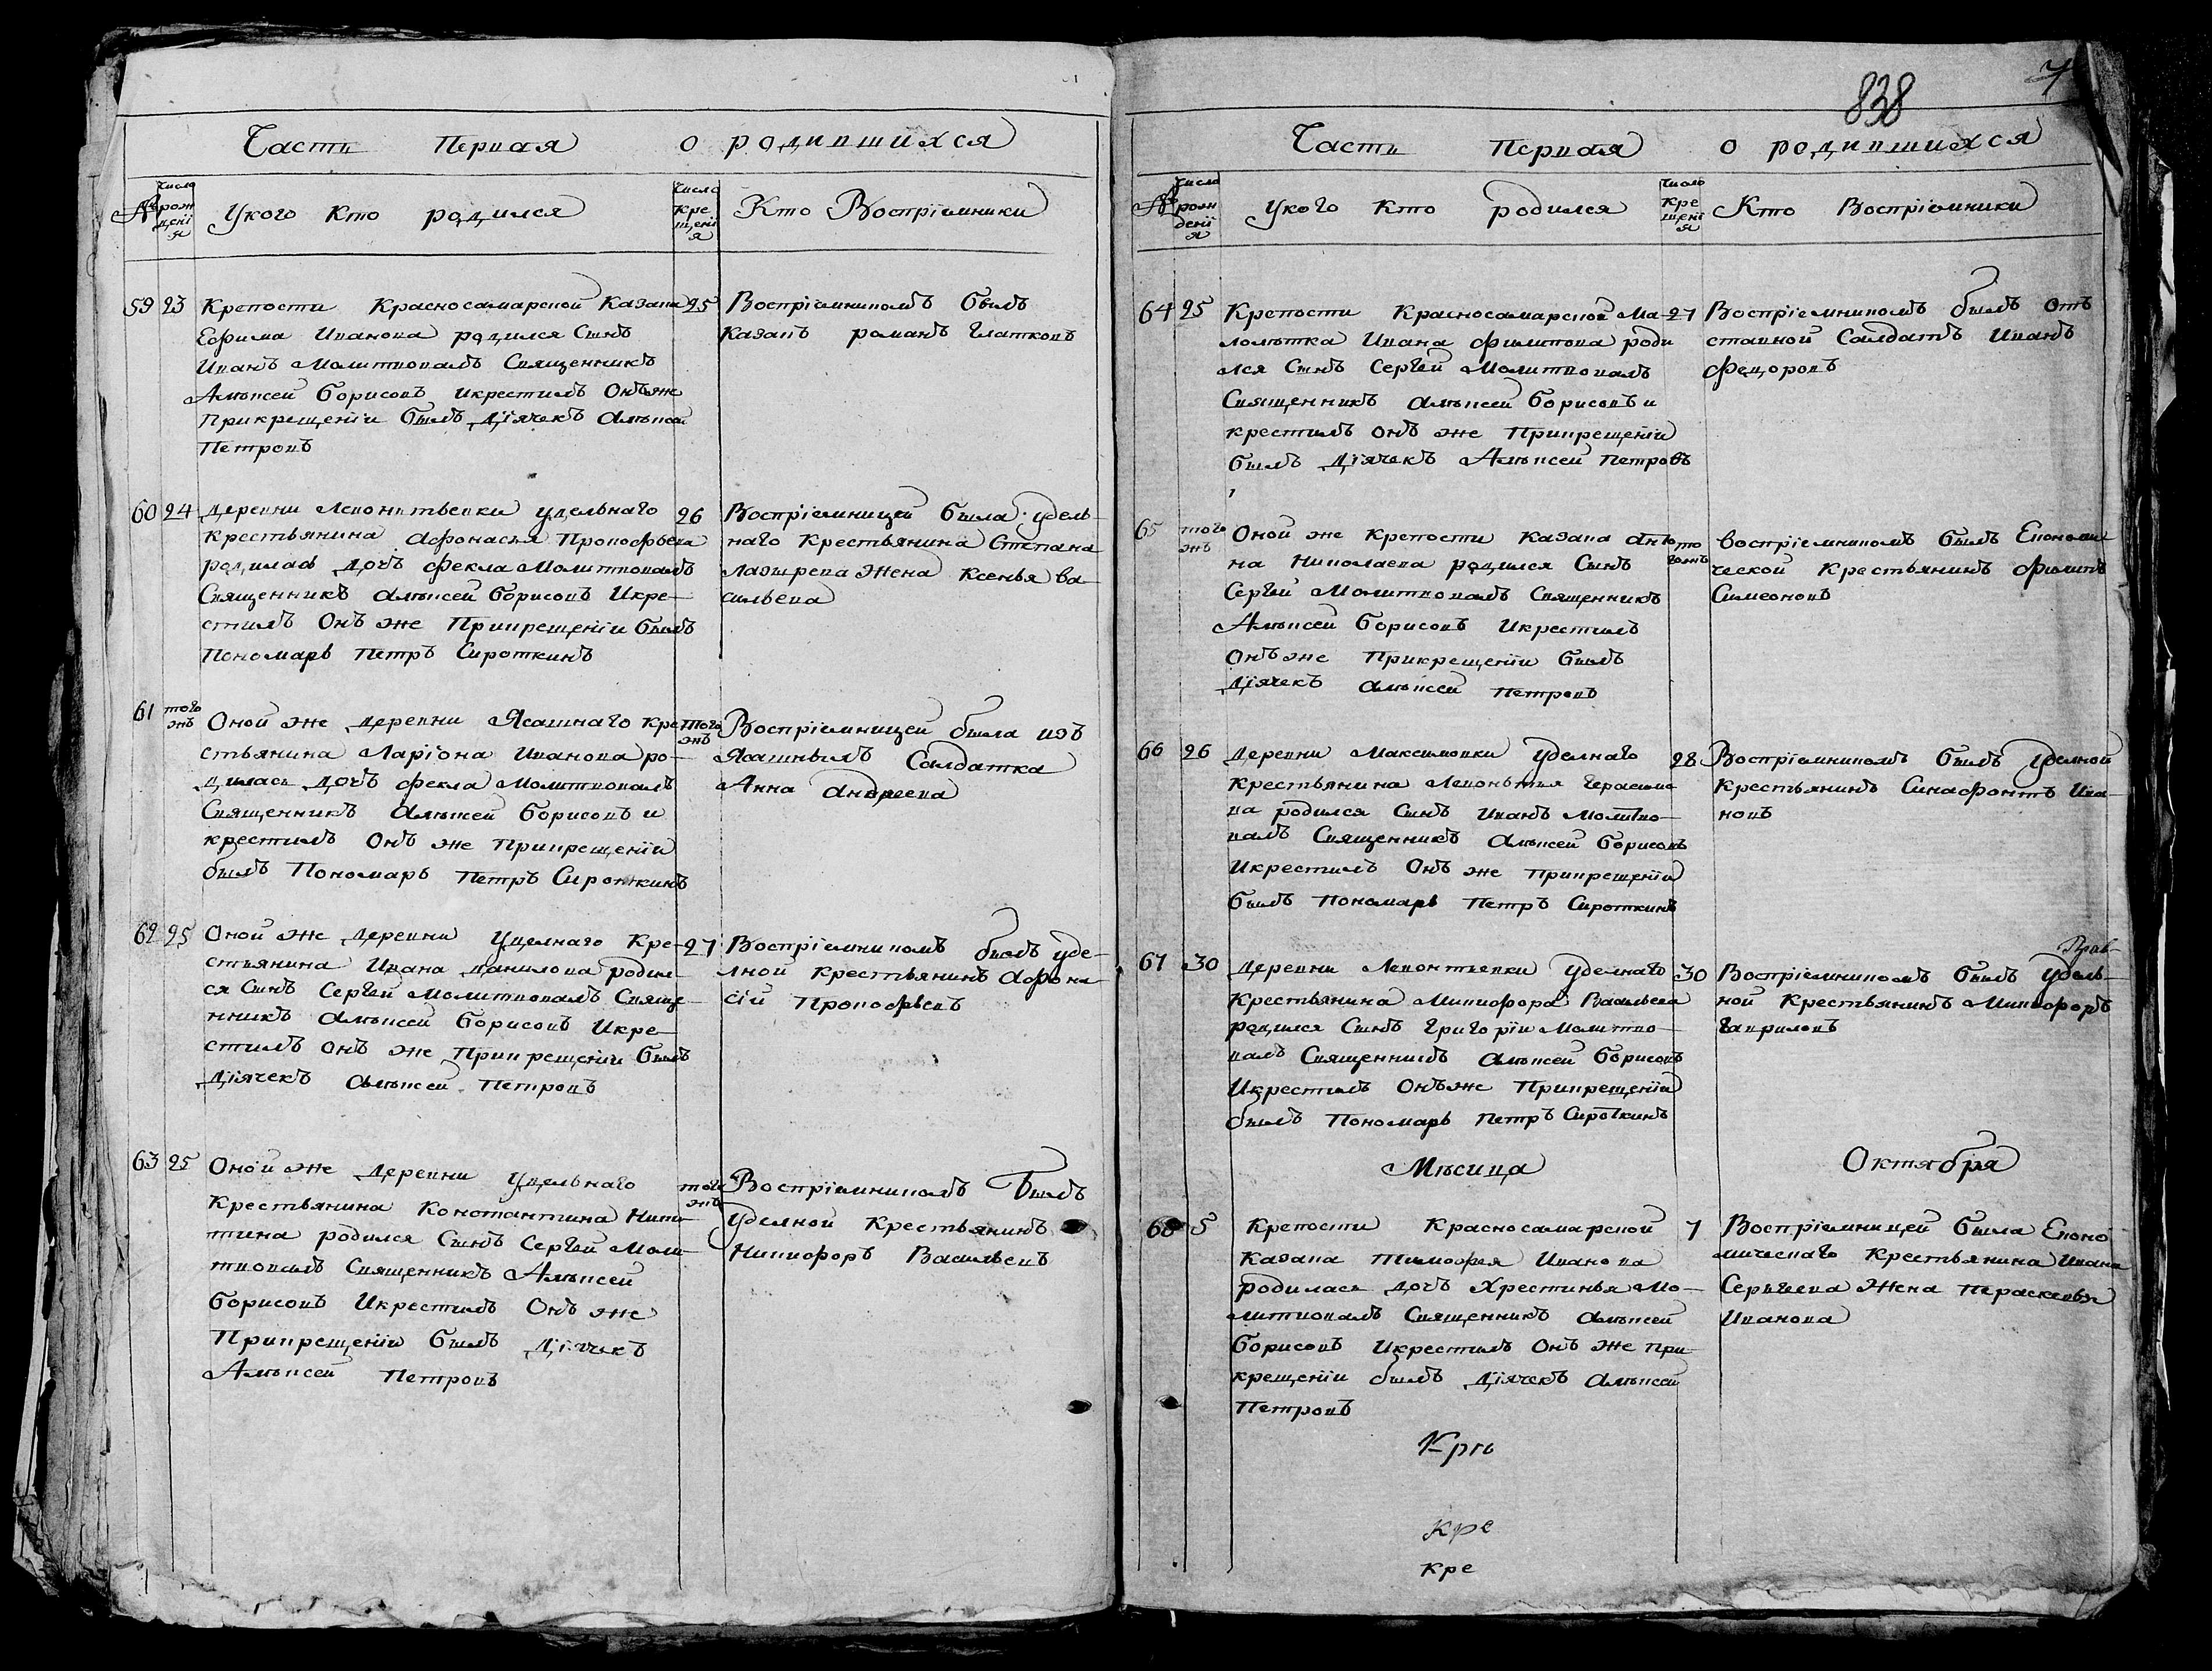 Часть Первая о родившихся
№ число рождения
Укого кто родился
число крещения
Кто Воспрiемники
59 23 Крепости Красносамарской Казака
Ефима Иванова родился Сынъ
Иванъ Молитвовалъ Священникъ
Алѣксей Борисовъ икрестилъ Онъже
Прикрещенiи былъ Дiячекъ Алѣксей
Петровъ
25 Воспрiемникомъ былъ
Казакъ романъ Глатковъ
60 24 деревни Леконитьевки удельнаго
крестьянина Афонасья Прокофьева
родилась дочь фекла Молитвовалъ
Священникъ Алѣксей Борисовъ Икре-
стилъ Онъ же Прикрещенiи былъ
Пономарь Петръ Сироткинъ
26 Воспрiемницей была удель-
наго Крестьянина Степана
Лазырева Жена Ксенья ва-
сильева
61 того жъ Оной же деревни Ясашнаго кре-
стьянина Ларiона Иванова ро-
дилась дочь фекла Молитвовалъ
Священникъ Алѣксей Борисовъ и
крестилъ Онъ же Прикрещенiи
былъ Пономарь Петръ Сироткинъ
того жъ Воспрiемницей была изъ
Ясашныхъ Салдатка
Анна Андреева
62 25 Оной же деревни Уделнаго Кре-
стьянина Ивана данилова родил-
ся Сынъ Сергей Молитвовалъ Свяще-
нникъ Алѣксей Борисовъ Икре-
стилъ Онъ же Прикрещенiи былъ
Дiячекъ Алѣксей Петровъ
27 Воспрiемникомъ былъ уде-
лной крестьянинъ Афона-
сiй Прокофьевъ
63 25 Оной же деревни Удельнаго
Крестьянина Константина Ники-
тина родился Сынъ Сергей Моли-
твовалъ Священникъ Алѣксей
Борисовъ Икрестилъ Онъ же
Прикрещенiи былъ Дiячекъ
Алѣксей Петровъ
того жъ Воспрiемникомъ Былъ
Уделной Крестьянинъ
Никифоръ Васильевъ
838
7
Часть Первая о родившихся
№ число рожденiя
Укого Кто родился
число крещенiя
Кто Воспрiемники
64 25 Крепости Красносамарской Ма-
лолѣтка Ивана филипова роди
лся Сынъ Сергей Молитвовалъ
Священникъ Алѣксей Борисовъ и
крестилъ онъ же Прикрещенiи
былъ Дiячекъ Алѣксей Петровъ
27 Воспрiемникомъ былъ От-
ставной Салдатъ Иванъ
Федоровъ
65 того жъ Оной же Крепости Казака
на Николаева родился Сынъ
Сергей Молитвовалъ Священникъ
Алѣксей Борисовъ Икрестилъ
Онъже Прикрещенiи былъ
Дiячекъ Алѣксей Петровъ
того жъ воспрiемникомъ былъ Економи
ческой Крестьянинъ филипъ
Симеоновъ
66 26 Деревни Максимовки Уделнаго
Крестьянина Леконьтия Герасимо
ва родился Сынъ Иванъ Молитво-
валъ Священникъ Алѣксей Борисовъ
Икрестилъ Онъ же Прикрещенiи
былъ Пономарь Петръ Сироткинъ
28 Воспрiемникомъ былъ Уделной
Крестьянинъ Синафонтъ Ива-
новъ
67 30 Деревни Леконтьевки Уделнаго
Крестьянина Миникфора Васильева
родился Сынъ Григорiи Молитво-
валъ Священникъ Алѣксей Борисовъ
Икрестилъ Онъже Прикрещенiи
былъ Пономарь Петръ Сироткинъ
30 Воспрiемникомъ былъ Удель-
ной Крестьянинъ Миникфоръ
Гавриловъ
Мѣсица Октября
68 5 Крепости Красносамарской
Казака Тимофея Иванова
родилась дочь Хрестинья Мо-
литвовалъ Священникъ Алѣксей
Борисовъ Икрестилъ Онъ же при
крещенiи былъ Дiячекъ Алѣксей
Петровъ
7 Воспрiемницей была Еконо
мическаго Крестьянина Ивана
Серьгеева Жена Парасковья
Иванова
Крѣ
кре
кре